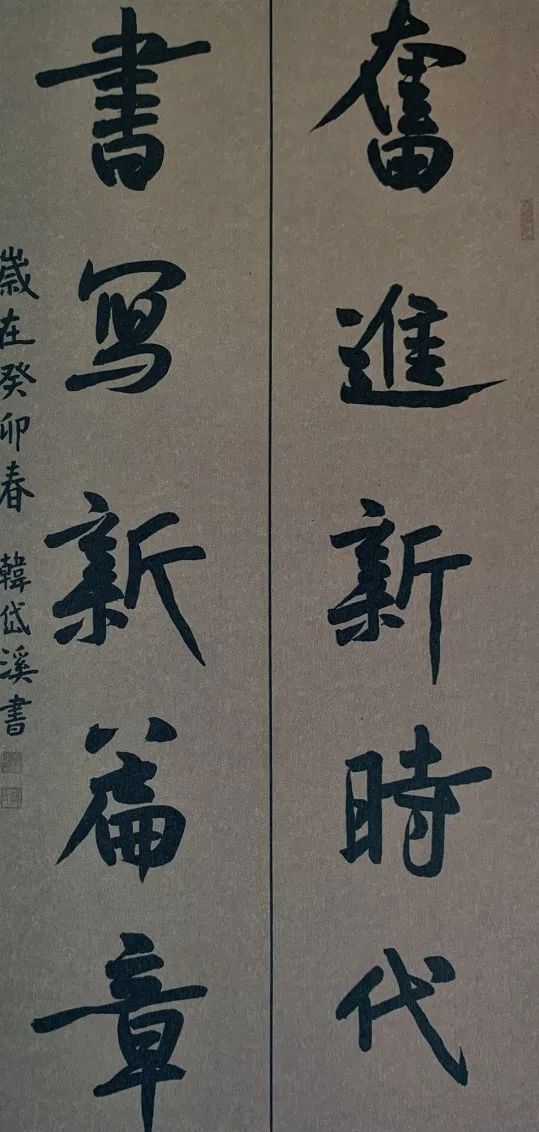 奮進新時代
書写新篇章
歲在癸卯春 韓岱溪書